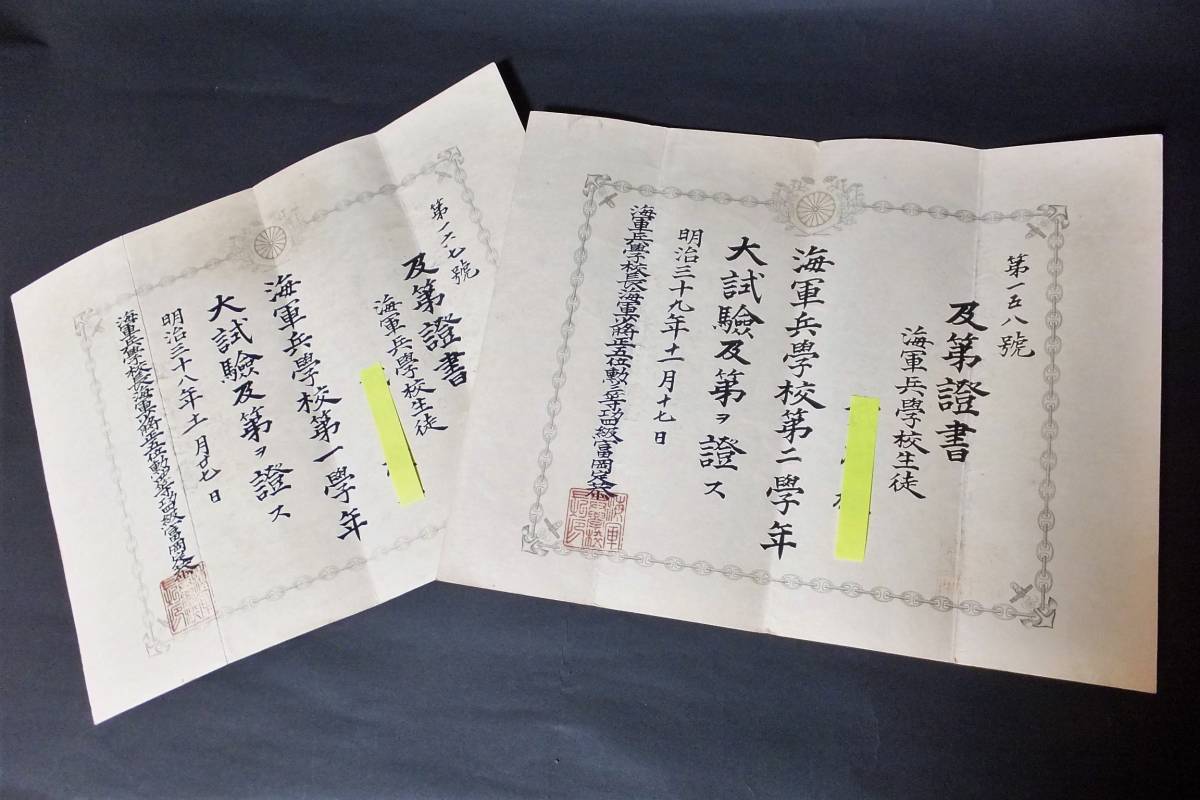 第一五八號
及第證書
海軍兵學校生徒
海軍兵學校第二學年
大試驗及第ヲ證ス
明治三十九年十一月十七日
海軍兵學校長海軍少將正五位勳三等功四級富岡定恭
第一六七號
及第證書
海軍兵學校生徒
海軍兵學校第一學年
大試驗及第ヲ證ス
明治三十八年十一月廿七日
海軍兵學校長海軍少將正五位勳三等功四級富岡定恭